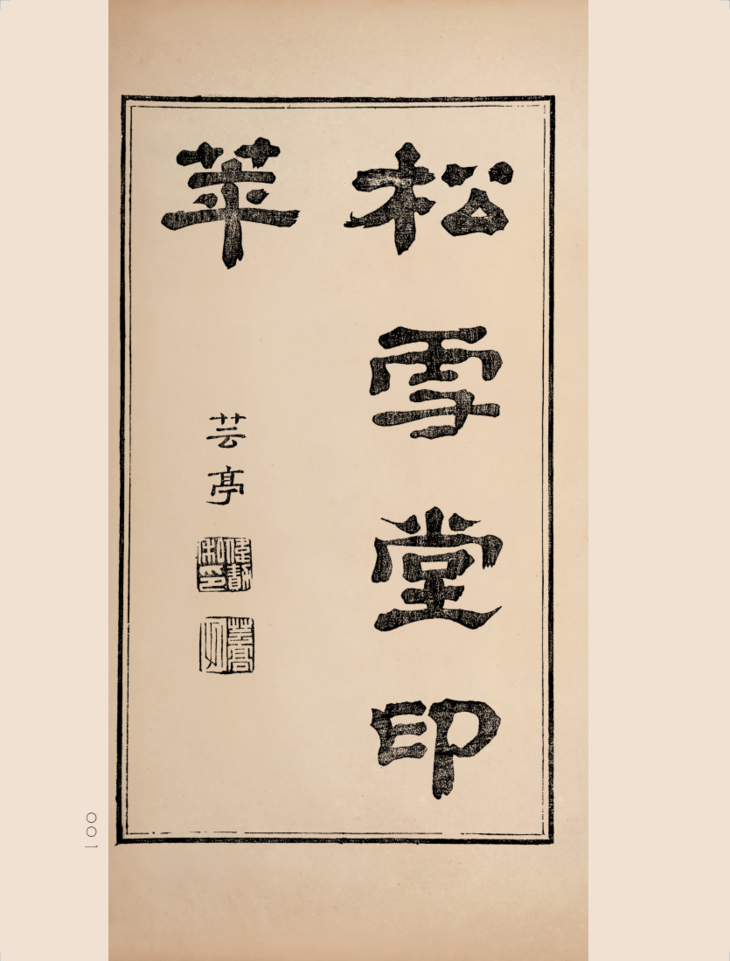 松雪堂印
萃
芸亭
〇〇一